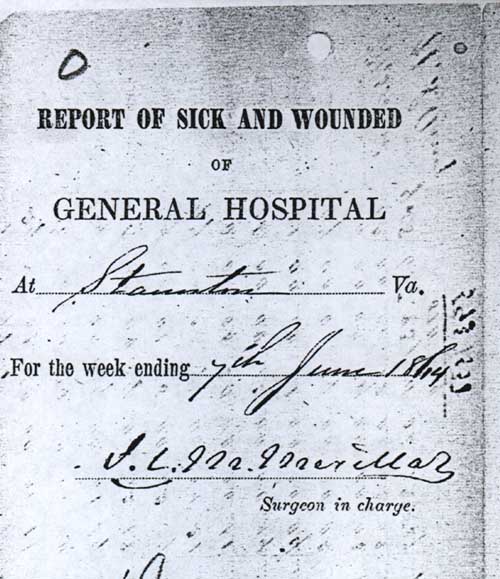 REPORT OF SICK AND WOUNDED
OF
GENERAL HOSPITAL
At Staunton Va.
For the week ending 7th June 1864
J. C. M. Merillat
Surgeon in charge.